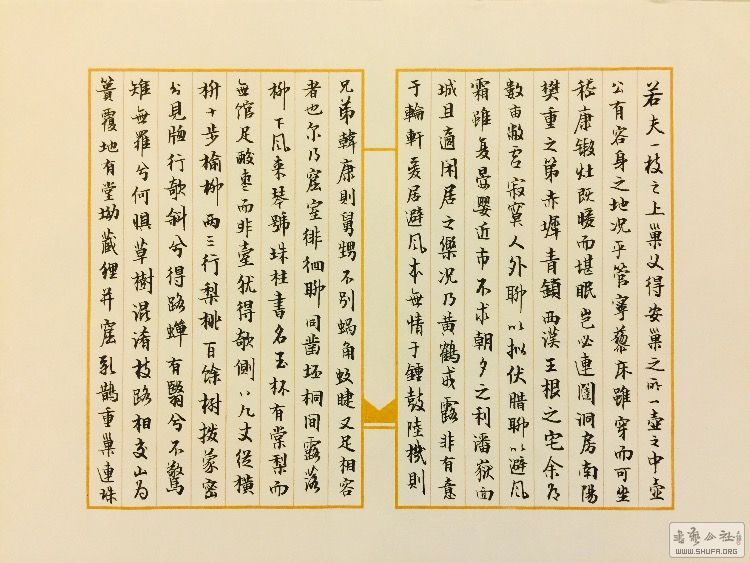 若夫一枝之上巢父得安巢之所一壺之中壺
公有容身之地况乎管寧藜床雖穿而可坐
嵇康鍛灶既暖而堪眠豈必連闥洞房南陽
樊重之第赤墀青鎖西漢王根之宅余有
數亩敝宅寂寞人外聊以拟伏腊聊以避风
霜雖复晏嬰近市不求朝夕之利潘嶽面
城且適闲居之樂况乃黄鶴戒露非有意
于輪軒爰居避风本無情于鍾鼓陸機則
兄弟韓康則舅甥不别蝸角蚊睫又足相容
者也尔乃窟室徘徊聊同鑿坯桐間露落
柳下风来琴號珠柱書名玉杯有棠梨而
無館足酸棗而非臺犹得欹側八九丈從橫
數十步榆柳兩三行梨桃百餘樹撥蒙密
兮見牎行欹斜兮得路蟬有翳兮不驚
雉無羅兮何惧草樹混淆枝路相交山为
簣覆地有堂坳藏貍并窟乳鵲重巢連珠
书艺公社
WWW.SHUFA.ORG